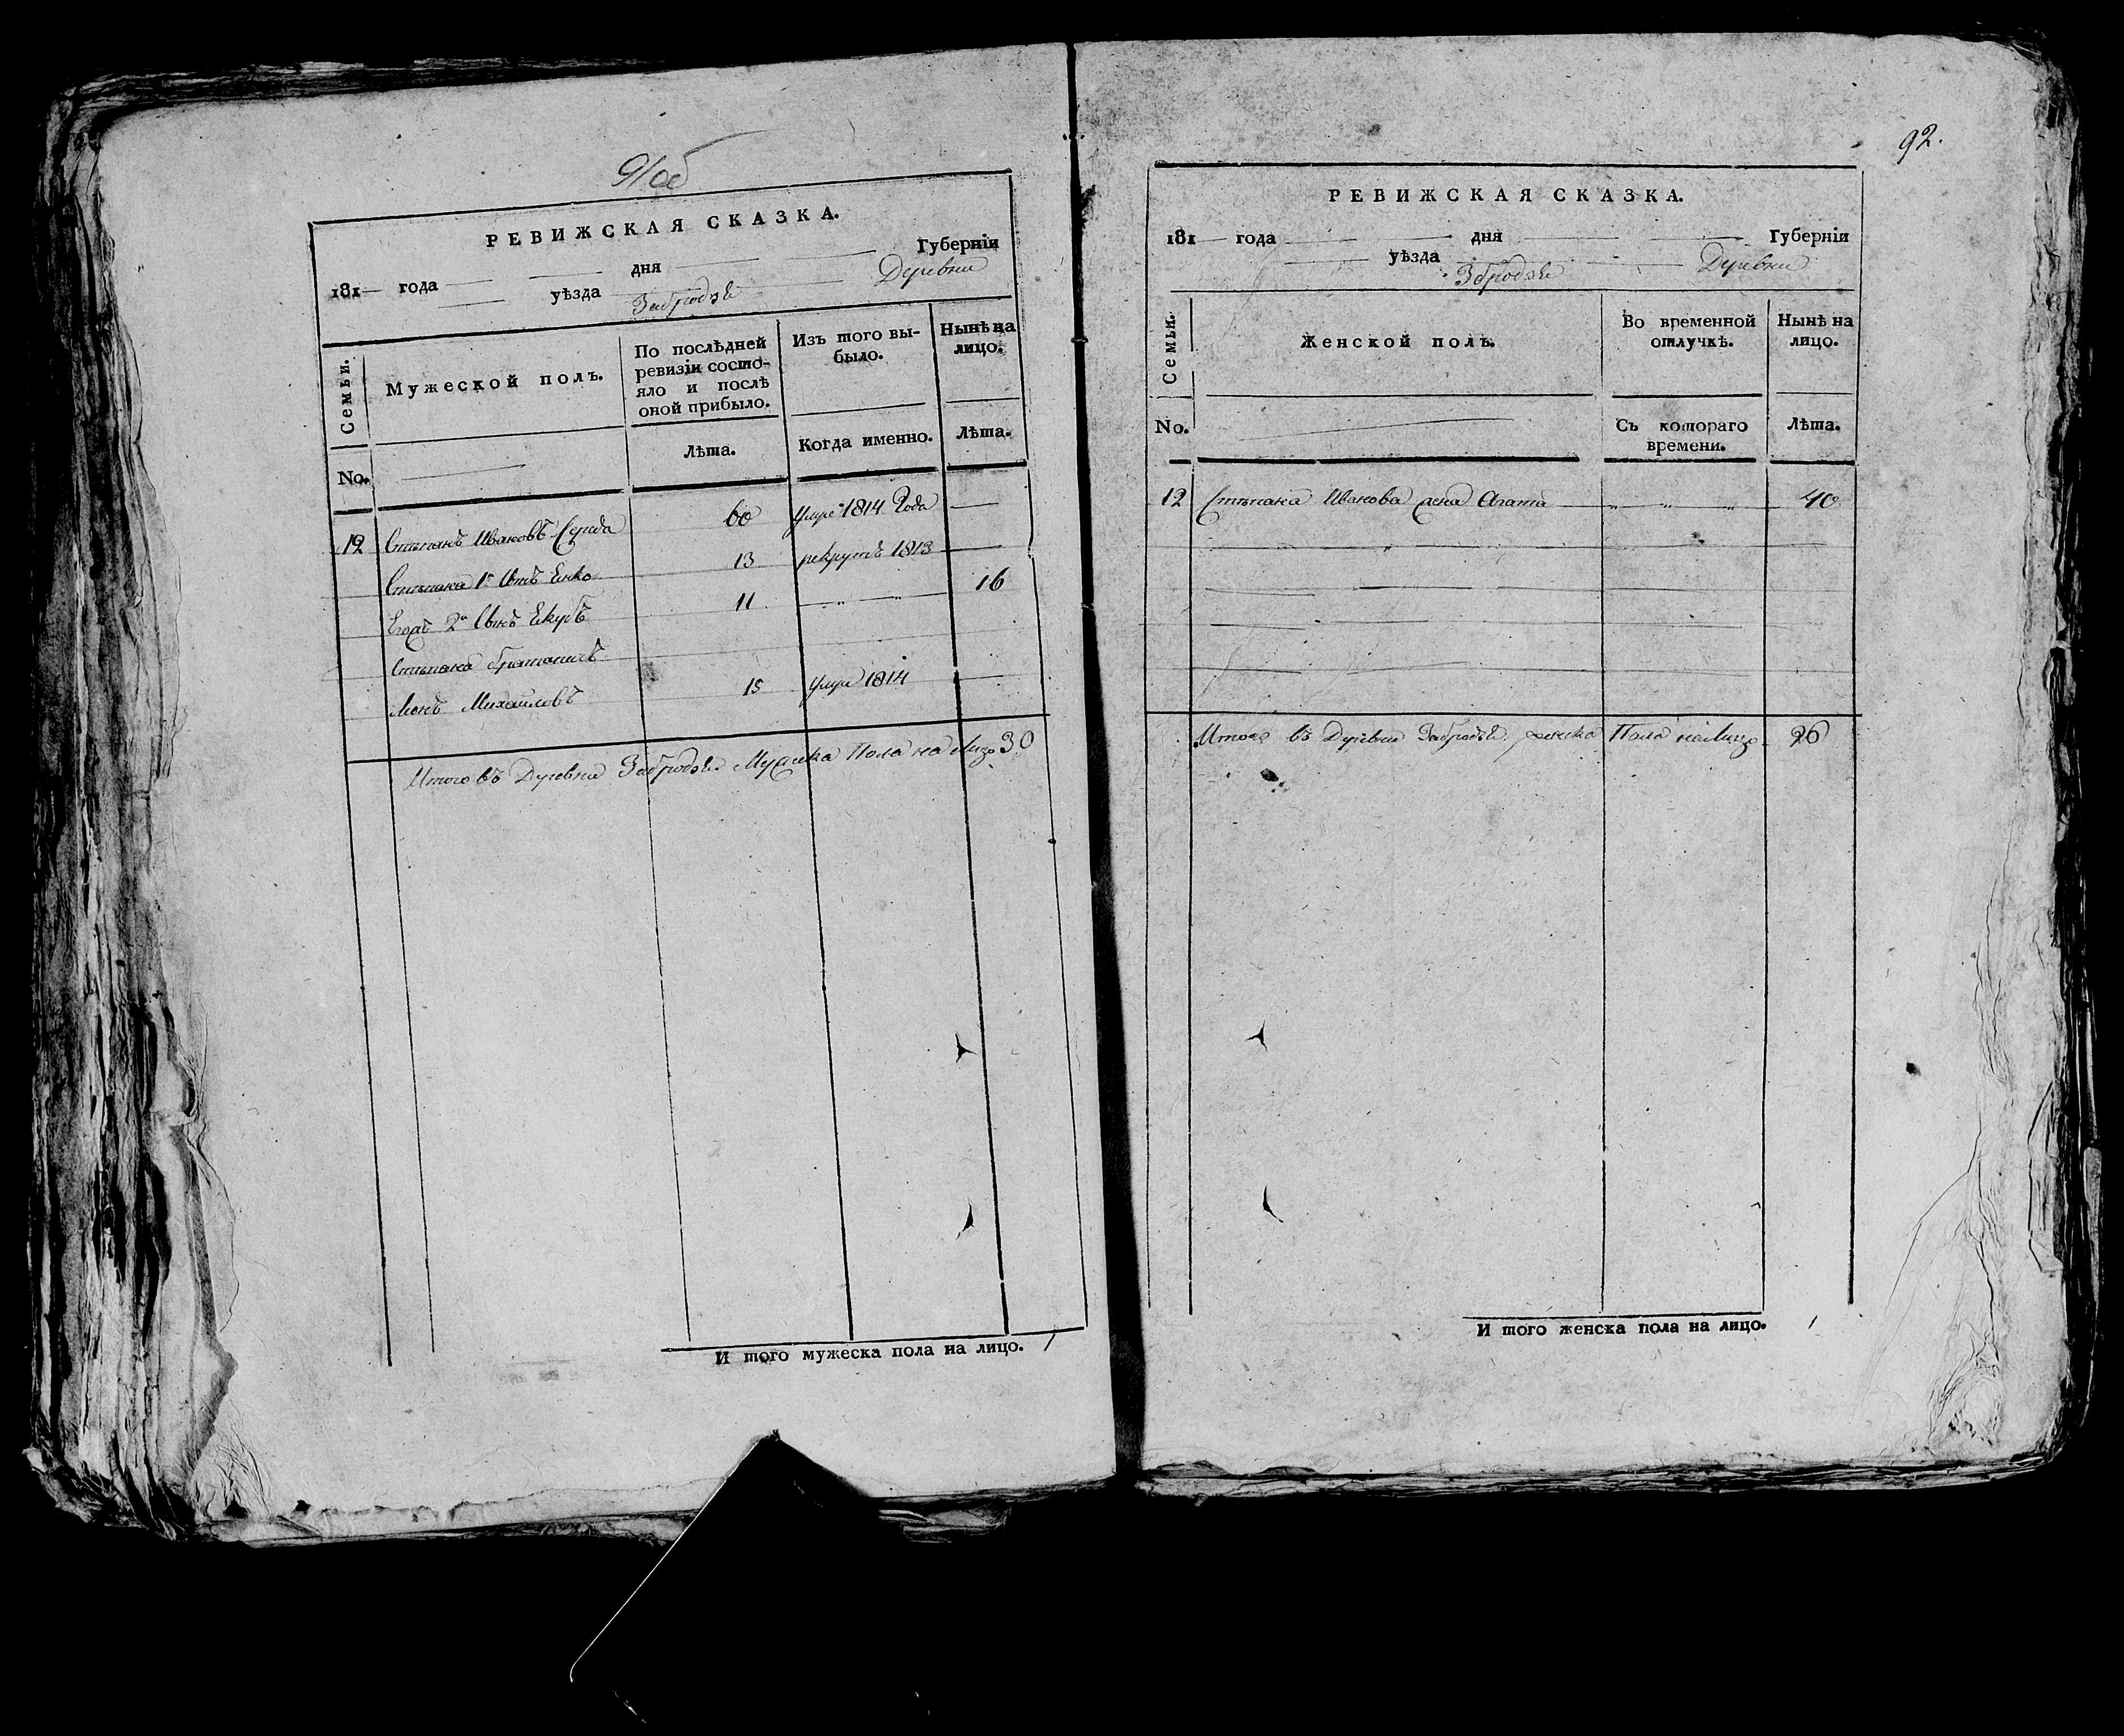 91об
РЕВИЖСКАЯ СКАЗКА.
181 — года — дня — Губерніи
уѣзда Забродзѣ Деревни
Семьи.
Мужеской полъ.
По послѣдней ревизіи состояло и послѣ оной прибыло.
Изъ того выбыло.
Нынѣ на лицо.
No.
Лѣта.
Когда именно.
Лѣта.
12 Степанъ Ивановъ Середа 60 умре 1814 Года —
Степана 1й Сынъ 13 рекрутъ 1813 —
Егоже 2й Сынъ Якубъ 11 — " — " 16
Степана братаничъ
Михайловъ 15 умре 1814 —
Итого въ Деревни Забродзѣ Мужска Пола на лицо 30
И того мужеска пола на лицо. 1
92.
РЕВИЖСКАЯ СКАЗКА.
181 — года — дня — Губерніи
уѣзда Збродзѣ Деревни
Семьи.
Женской полъ.
Во временной отлучкѣ.
Нынѣ на лицо.
No.
Съ котораго времени.
Лѣта.
12 Степана Иванова жена Агата " " " 40
Итого въ Деревни Забродзѣ женска Пола на лицо 26
И того женска пола на лицо. 1